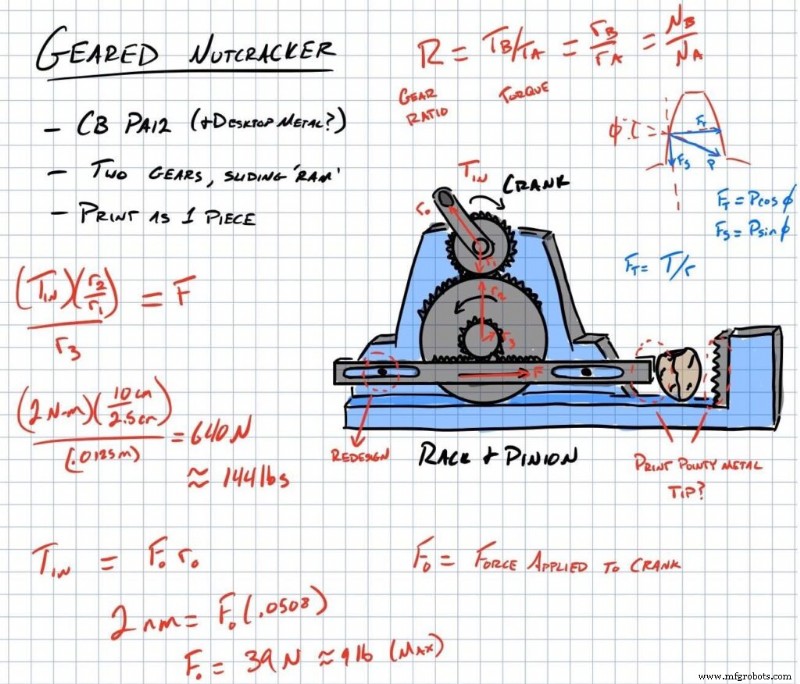 GEARED NUTCRACKER
- CB PA12 (+DESKTOP METAL?)
- TWO GEARS, SLIDING 'RAM'
- PRINT AS 1 PIECE
R = TB/TA = rB/rA = NB/NA
GEAR RATIO
TORQUE
φ
Ft
Fs
P
Ft = Pcos φ
Fs = Psin φ
Ft = T/r
TIN
CRANK
r0
r1
r2
r3
F
(TIN)(r2/r1)/r3 = F
(2 N-m)(10cm/2.5cm)/(.0125m) = 640 N
≈ 144 lbs
REDESIGN
RACK + PINION
PRINT POINTY METAL
TIP?
TIN = F0 r0
F0 = FORCE APPLIED TO CRANK
2 nm = F0 (.0508)
F0 = 39 N ≈ 9 lb (MAX)
www.mfgrobots.com